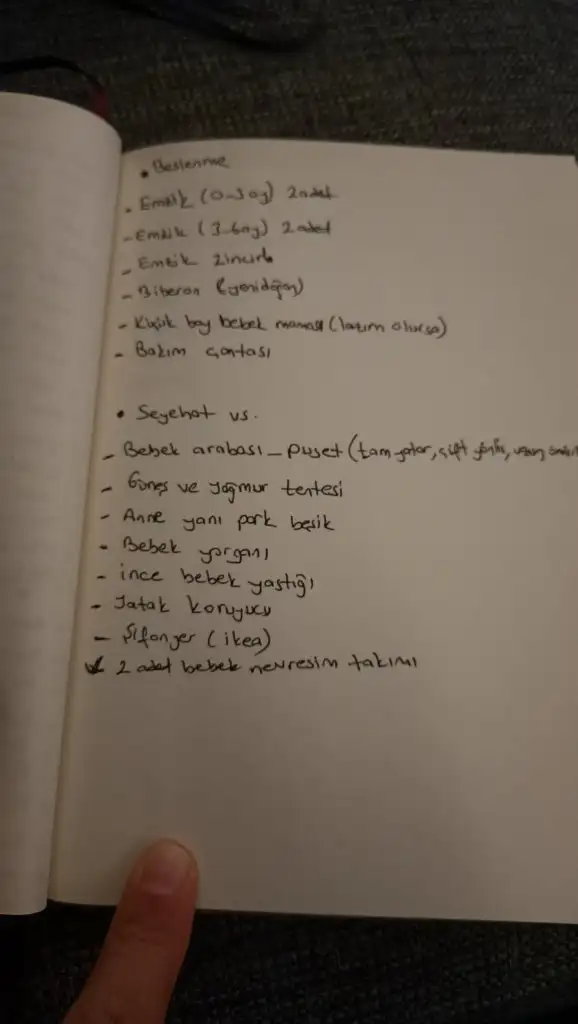 • Beslenme
- Emzik (0-3 ay) 2 adet
- Emzik (3-6ay) 2 adet
- Emzik zinciri
- Biberon (yenidoğan)
- Küçük boy bebek maması (lazım olursa)
- Bakım çantası
• Seyehat vs.
- Bebek arabası - puset (tam yatar, çift yönlü,
- Güneş ve yağmur tentesi
- Anne yanı park beşik
- Bebek yorganı
- ince bebek yastığı
- Yatak koruyucu
- Şifonyer (ikea)
✓ 2 adet bebek nevresim takımı